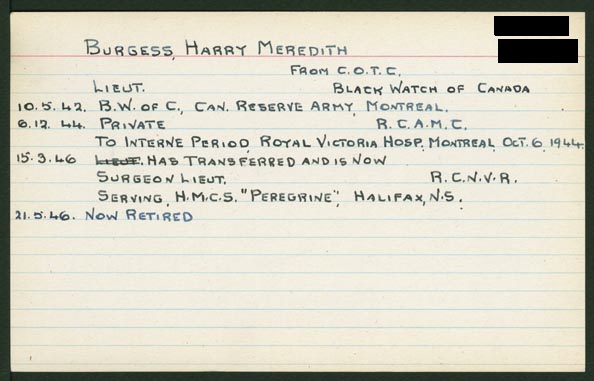 BURGESS, HARRY MEREDITH
FROM C.O.T.C.
LIEUT. BLACK WATCH OF CANADA
10.5.42. B.W. OF C., CAN. RESERVE ARMY, MONTREAL.
6.12.44. PRIVATE R.C.A.M.C.
TO INTERNE PERIOD, ROYAL VICTORIA HOSP, MONTREAL, OCT. 6, 1944.
15.3.46 LIEUT. HAS TRANSFERRED AND IS NOW
SURGEON LIEUT. R.C.N.V.R.
SERVING, H.M.C.S. "PEREGRINE", HALIFAX, N.S.
21.5.46. NOW RETIRED